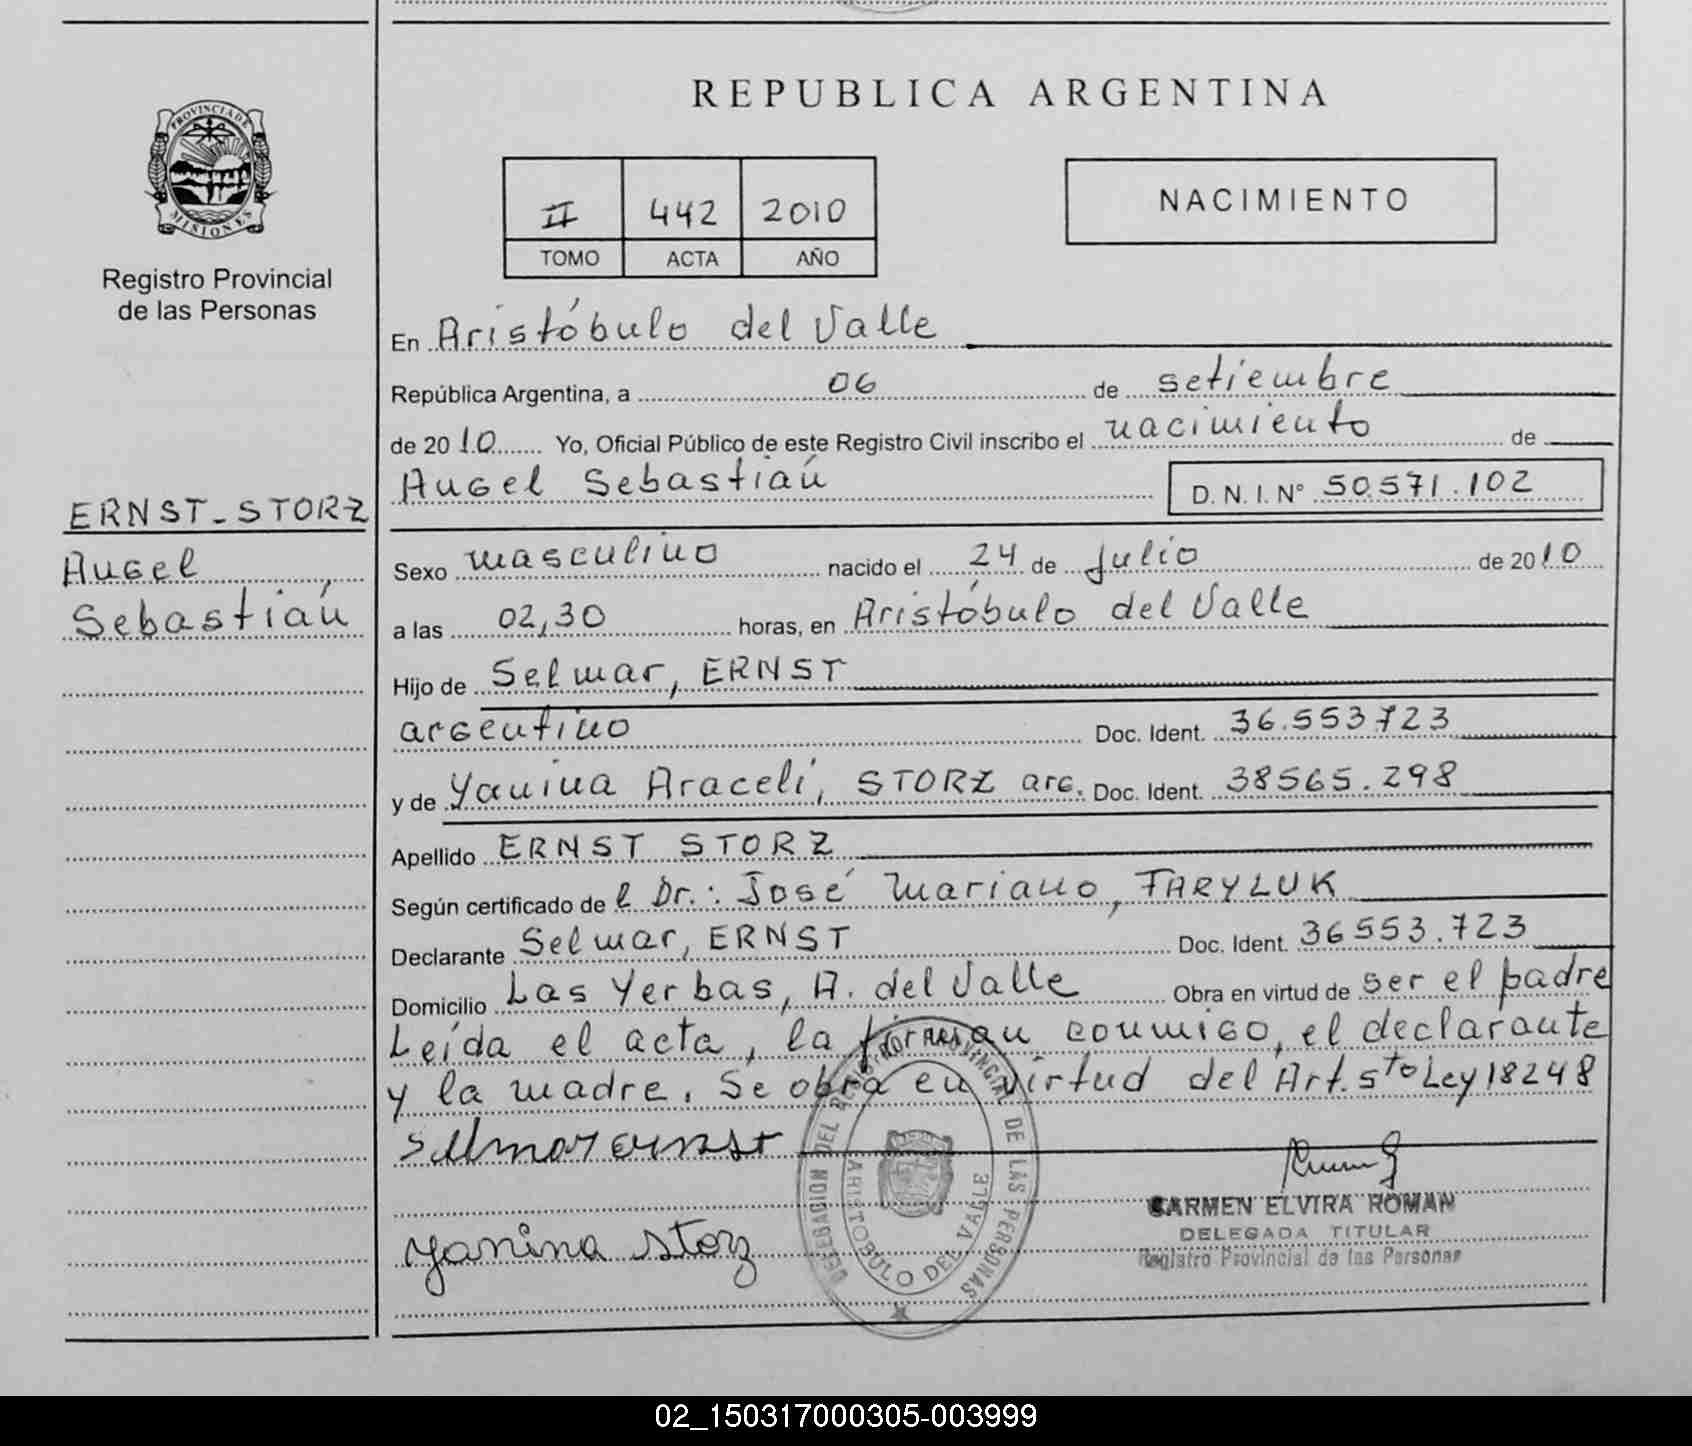 REPUBLICA ARGENTINA
PROVINCIA DE
MISIONES
Registro Provincial
de las Personas
II 442 2010
TOMO ACTA AÑO
NACIMIENTO
ERNST-STORZ
Angel
Sebastián
En Aristóbulo del Valle
República Argentina, a 06 de setiembre
de 2010 Yo, Oficial Público de este Registro Civil inscribo el nacimiento de
Angel Sebastián D.N.I.N° 50.571.102
Sexo masculino nacido el 24 de julio de 2010
a las 02,30 horas, en Aristóbulo del Valle
Hijo de Selmar, ERNST
argentino Doc. Ident. 36.553.723
y de Yanina Araceli, STORZ arg. Doc. Ident. 38565.298
Apellido ERNST STORZ
Según certificado del Dr.: José Mariano, TARYLUK
Declarante Selmar, ERNST Doc. Ident. 36553.723
Domicilio Las Yerbas, A. del Valle Obra en virtud de ser el padre
Leída el acta, la firman conmigo, el declarante
y la madre. Se obra en virtud del Art. 5to Ley 18248
Selmar ernst
Yanina Storz
DELEGACION DEL REGISTRO PROVINCIAL DE LAS PERSONAS
ARISTOBULO DEL VALLE
CARMEN ELVIRA ROMAN
DELEGADA TITULAR
Registro Provincial de las Personas
02_150317000305-003999